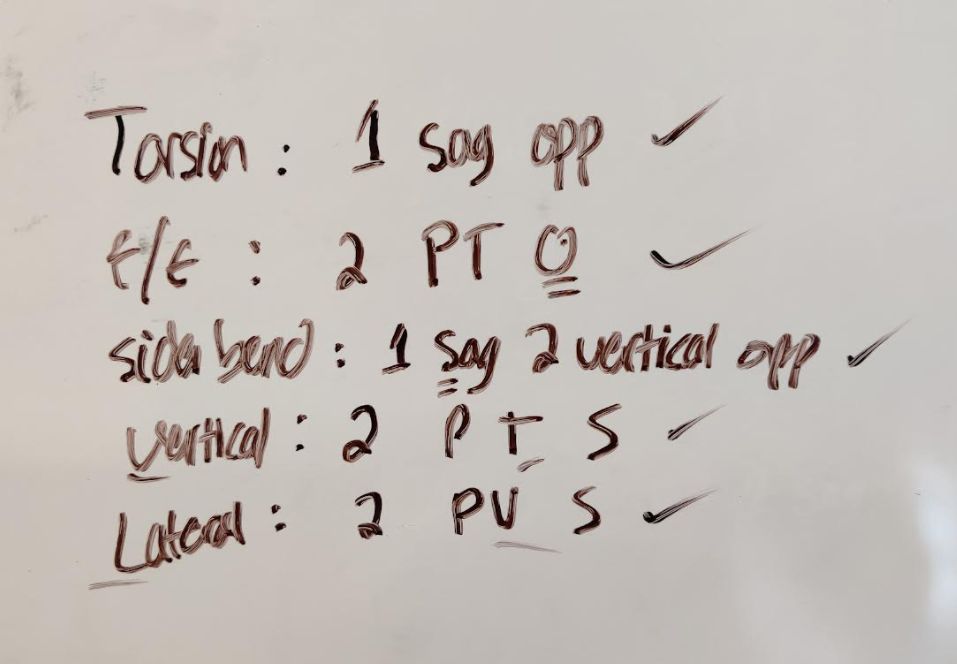 Torsion : 1 sag opp ✓
F/E : 2 PT O ✓
side bend : 1 sag 2 vertical opp ✓
vertical : 2 P T S ✓
Lateral : 2 PV S ✓